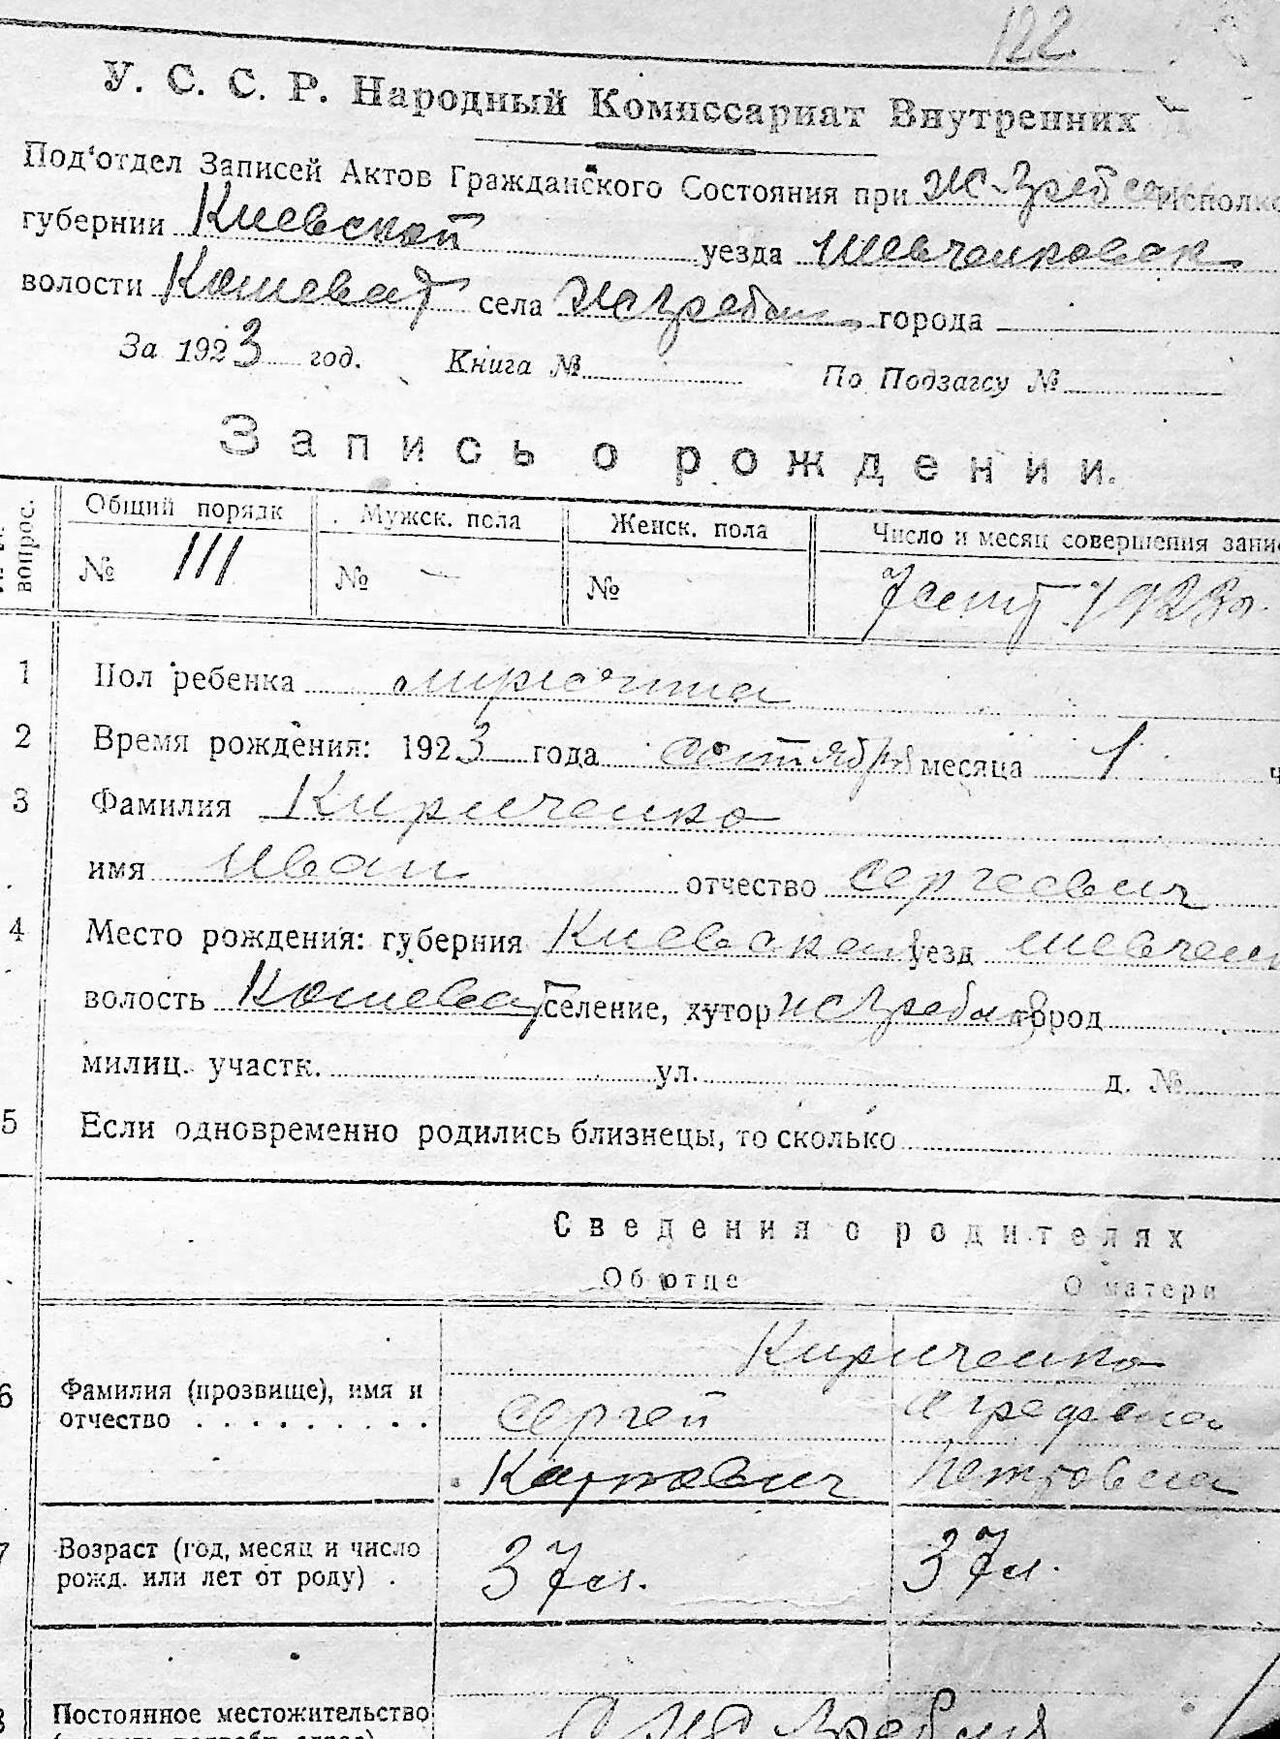 122.
У. С. С. Р. Народный Комиссариат Внутренних
Под'отдел Записей Актов Гражданского Состояния при
губернии Киевской уезда Шевченковск
волости Кошеват села города
За 1923 год. Книга № По Подзагсу №
Запись о рождении.
вопрос. Общий порядк Мужск. пола Женск. пола Число и месяц совершения запис
№ 111 № — № 7 сент 1923 г.
1 Пол ребенка
2 Время рождения: 1923 года сентября месяца 1 ч
3 Фамилия Кириченко
имя Иван отчество Сергеевич
4 Место рождения: губерния Киевская уезд Шевчен
волость Кошеват селение, хутор город
милиц. участк. ул. д. №
5 Если одновременно родились близнецы, то сколько
Сведения о родителях
Об отце О матери
Кириченко
6 Фамилия (прозвище), имя и Сергей Аграфена
отчество . . . . . . . . . Карпович Петровна
7 Возраст (год, месяц и число 37 л. 37 л.
рожд. или лет от роду) .
8 Постоянное местожительство